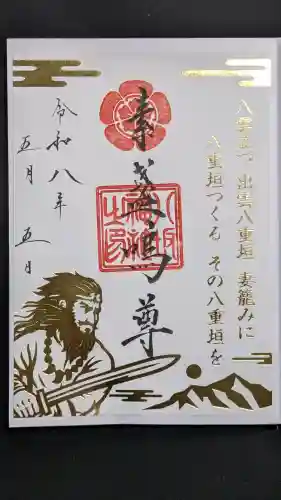 八雲立つ 出雲八重垣 妻籠みに
八重垣つくる その八重垣を
素盞嗚尊
令和八年
五月 五日